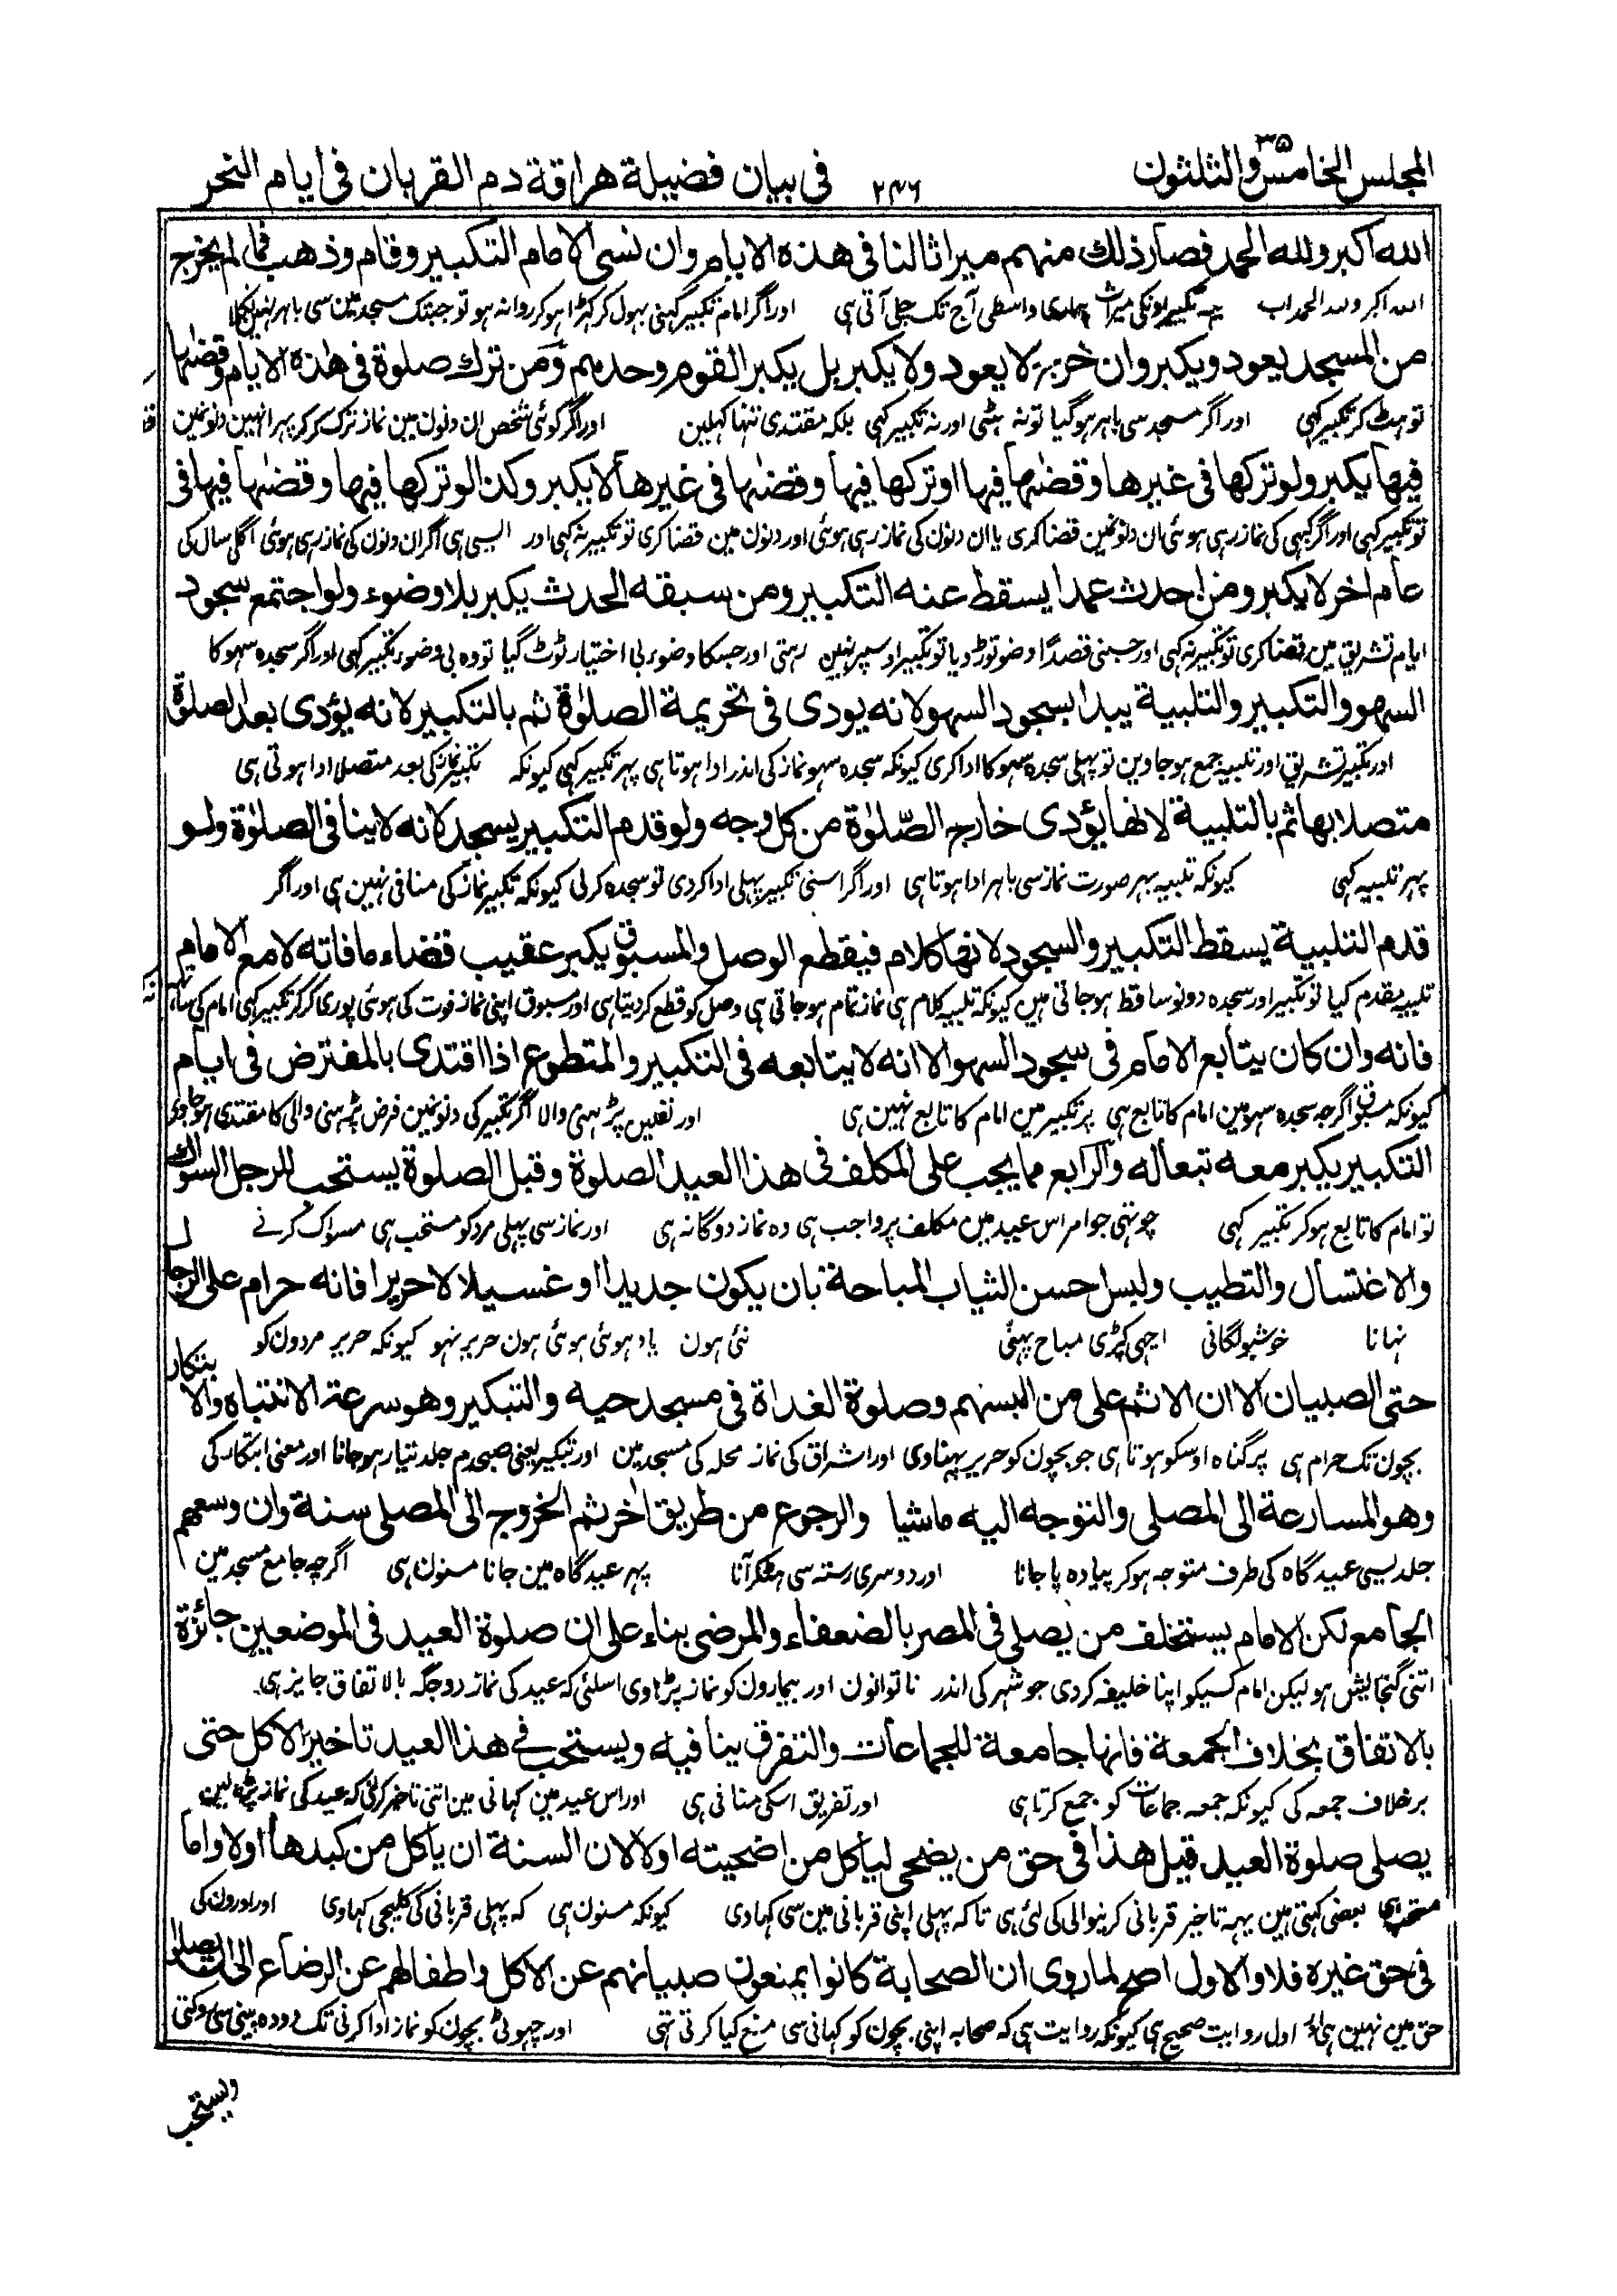 المجلس الخامس والثلثون ٣٥ ٢٤٦ فى بيان فضيلة هراقة دم القربان فى ايام النحر
الله اكبر ولله الحمد فصار ذلك منهم ميراثا لنا فى هذه الايام وان نسى الامام التكبير وقام وذهب فما لم يخرج
الله اكبر ولله الحمد اب یہ تکبیر اونکی میراث ہماری واسطی آج تک چلی آتی ہی اور اگر امام تکبیر کہنی بہول کر کہڑا ہو کر روانہ ہو تو جبتک مسجد مین سی باہر نہین نکلا
من المسجد يعود ويكبر وان خرج لا يعود ولا يكبر بل يكبر القوم وحدهم ومن ترك صلوة فى هذه الايام وقضٰها
تو ہٹ کر تکبیر کہی اور اگر مسجد سی باہر ہو گیا تو نہ ہٹی اور نہ تکبیر کہی بلکہ مقتدی تنہا کہلین اور اگر کوئی شخص ان دنون مین نماز ترک کر کر پہر انہین دنونمین
فيها يكبر ولو تركها فى غيرها وقضٰها فيها او تركها فيها وقضٰها فى غيرها لا يكبر وكذا لو تركها فيها وقضٰها فيها فى
تو تکبیر کہی اور اگر کبہی کی نماز رہی ہوئی ان دنونمین قضا کری یا ان دنون کی نماز رہی ہوئی اور دنون مین قضا کری تو تکبیر نہ کہی اور ایسی ہی اگر ان دنون کی نماز رہی ہوئی اگلی سال کی
عام اخر لا يكبر ومن احدث عمدا يسقط عنه التكبير ومن سبقه الحدث يكبر بلا وضوء ولو اجتمع سجود
ایام تشریق مین قضا کری تو تکبیر نہ کہی اور جسنی قصدًا وضو توڑ دیا تو تکبیر اوسپر نہین رہتی اور جسکا وضوء بی اختیار ٹوٹ گیا تو وہ بی وضوء تکبیر کہی اور اگر سجدہ سہو کا
السهو والتكبير والتلبية يبدا بسجود السهو لانه يودى فى تحريمة الصلوٰة ثم بالتكبير لانه يؤدى بعد الصلوٰة
اور تکبیر تشریق اور تلبیہ جمع ہو جاوین تو پہلی سجدہ سہو کا ادا کری کیونکہ سجدہ سہو نماز کی اندر ادا ہوتا ہی پہر تکبیر کہی کیونکہ تکبیر نماز کی بعد متصلا ادا ہوتی ہی
متصلا بها ثم بالتلبية لانها يؤدى خارج الصّلوٰة من كل وجه ولو قدم التكبير يسجد لانه لا ينافى الصلوٰة ولو
پہر تلبیہ کہی کیونکہ تلبیہ بہر صورت نماز سی باہر ادا ہوتا ہی اور اگر اسنی تکبیر پہلی ادا کردی تو سجدہ کرلی کیونکہ تکبیر نماز کی منافی نہین ہی اور اگر
قدم التلبية يسقط التكبير والسجود لانها كلام فيقطع الوصل والمسبوق يكبر عقيب قضاء ما فاته لا مع الامام
تلبیہ مقدم کیا تو تکبیر اور سجدہ دونو ساقط ہو جاتی ہین کیونکہ تلبیہ کلام ہی نماز تمام ہو جاتی ہی وصل کو قطع کر دیتا ہی اور مسبوق اپنی نماز فوت کی ہوئی پوری کر کر تکبیر کہی امام کی ساتہ نہ
فانه وان كان يتابع الامام فى سجود السهو الا انه لا يتابعه فى التكبير والمتطوع اذا اقتدى بالمفترض فى ايام
کیونکہ مسبوق اگرچہ سجدہ سہو مین امام کا تابع ہی پر تکبیر مین امام کا تابع نہین ہی اور نفلین پڑہنی والا اگر تکبیر کی دنونمین فرض پڑہنی والی کا مقتدی ہو جاوی
التكبير يكبر معه تبعا له والرابع مما يجب على المكلف فى هذا العيد الصلوة وقبل الصلوة يستحب للرجل السواك
تو امام کا تابع ہو کر تکبیر کہی چوتہی جو امر اس عید مین مکلف پر واجب ہی وہ نماز دوگانہ ہی اور نماز سی پہلی مرد کو مستحب ہی مسواک کرنے
والاغتسال والتطيب ولبس احسن الثياب المباحة بان يكون جديدا او غسيلا لا حريرا فانه حرام على الرجال
نہانا خوشبو لگانی اچہی کپڑی مباح پہنی نئی ہون یا دہوئی ہوئی ہون حریر نہو کیونکہ حریر مردون کو
حتى الصبيان الا ان الاثم على من البسهم وصلوة الغداة فى مسجد حيه والتبكير وهو سرعة الانتباه والابتكار
بچون تک حرام ہی پر گناہ اوسکو ہوتا ہی جو بچون کو حریر پہناوی اور اشراق کی نماز محلہ کی مسجد مین اور تبکیر یعنی صبحدم جلد تیار ہو جانا اور معنی ابتکار کی
وهو المسارعة الى المصلى والتوجه اليه ماشيا والرجوع من طريق اخر ثم الخروج الى المصلى سنة وان وسعهم
جلدیسی عیدگاہ کی طرف متوجہ ہو کر پیادہ پا جانا اور دوسری رستہ سی ہٹکر آنا پہر عیدگاہ مین جانا مسنون ہی اگرچہ جامع مسجد مین
الجامع لكن الامام يستخلف من يصلى فى المصر بالضعفاء والمرضى بناء على ان صلوة العيد فى الموضعين جائزة
اتنی گنجایش ہو لیکن امام کسیکو اپنا خلیفہ کردی جو شہر کی اندر ناتوانون اور بیمارون کو نماز پڑہاوی اسلئی کہ عید کی نماز دو جگہ بالاتفاق جایز ہی
بالاتفاق بخلاف الجمعة فانها جامعة للجماعات والتفرق ينافيه ويستحب فى هذا العيد تاخير الاكل حتى
برخلاف جمعہ کی کیونکہ جمعہ جماعات کو جمع کرتا ہی اور تفریق اسکی منافی ہی اور اس عید مین کہانی مین اتنی تاخیر کرنی کہ عید کی نماز پڑہ لین
يصلى صلوة العيد قيل هذا فى حق من يضحى لياكل من اضحيته اولا لان السنة ان ياكل من كبدها اولا واما
مستحب ہی بعضی کہتی ہین یہہ تاخیر قربانی کرنیوالی کی لئی ہی تاکہ پہلی اپنی قربانی مین سی کہاوی کیونکہ مسنون ہی کہ پہلی قربانی کی کلیجی کہاوی اور اورون کی
فى حق غيره فلا والاول اصح لما روى ان الصحابة كانوا يمنعون صبيانهم عن الاكل واطفالهم عن الرضاع الى ان يصلوا
حق مین نہین ہی اور اول روایت صحیح ہی کیونکہ روایت ہی کہ صحابہ اپنی بچون کو کہانی سی منع کیا کرتی تہی اور چہوٹی بچون کو نماز ادا کرنی تک دودہ پینی سی روکتی
ويستحب